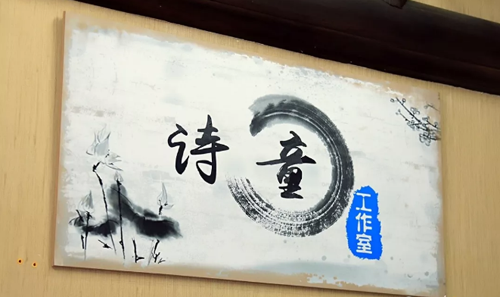 诗童
工作室